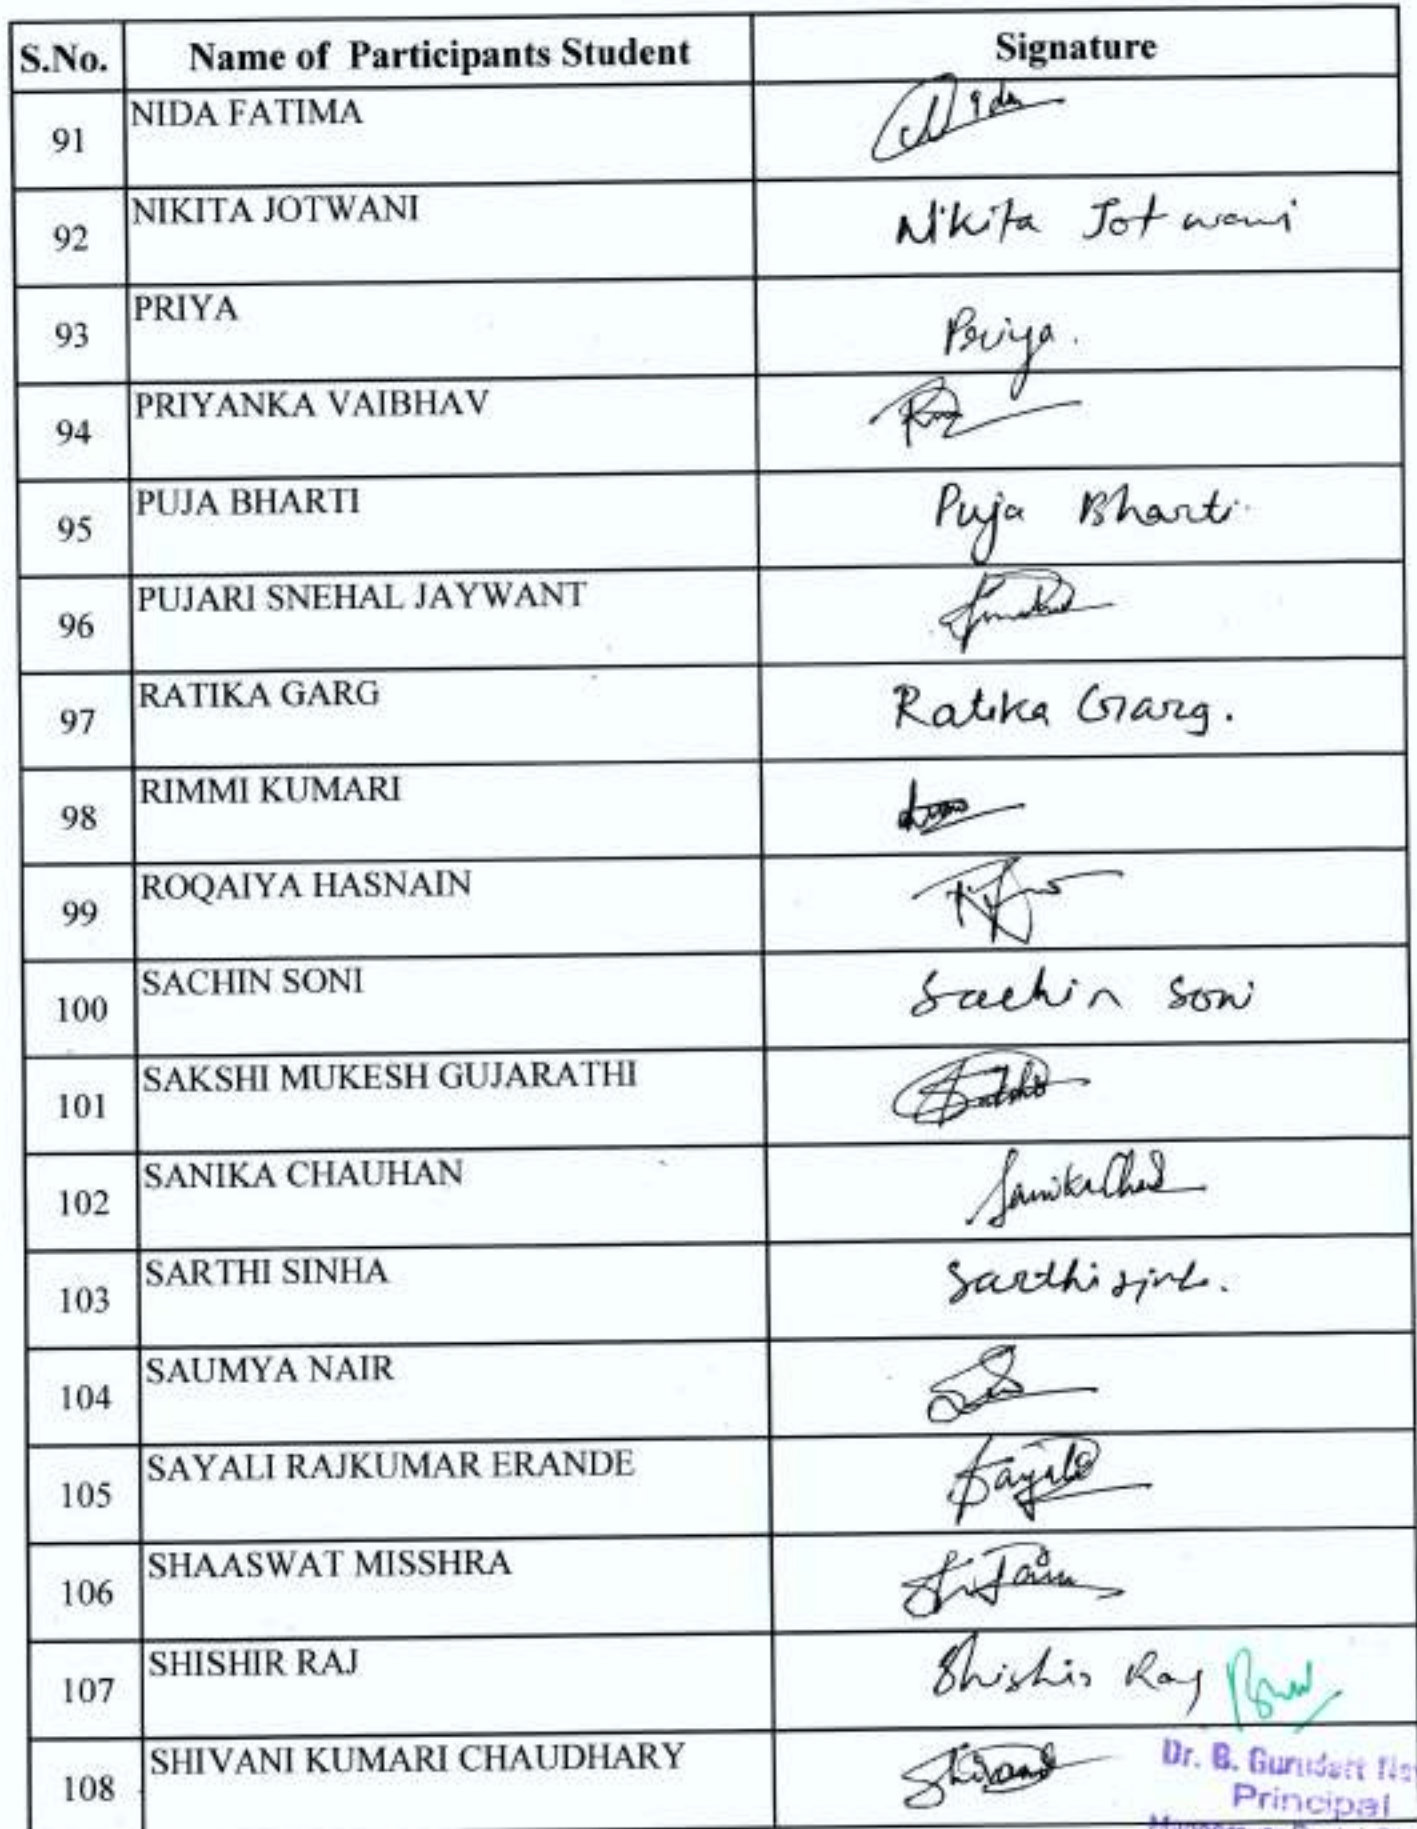 S.No. Name of Participants Student Signature
91 NIDA FATIMA Nida
92 NIKITA JOTWANI Nikita Jotwani
93 PRIYA Priya.
94 PRIYANKA VAIBHAV
95 PUJA BHARTI Puja Bharti
96 PUJARI SNEHAL JAYWANT
97 RATIKA GARG Ratika Garg.
98 RIMMI KUMARI
99 ROQAIYA HASNAIN
100 SACHIN SONI Sachin Soni
101 SAKSHI MUKESH GUJARATHI Sakshi
102 SANIKA CHAUHAN Sanika
103 SARTHI SINHA Sarthi
104 SAUMYA NAIR
105 SAYALI RAJKUMAR ERANDE Sayali
106 SHAASWAT MISSHRA
107 SHISHIR RAJ Shishir Raj
108 SHIVANI KUMARI CHAUDHARY Shivani
Dr. B. Gurudatt
Principal